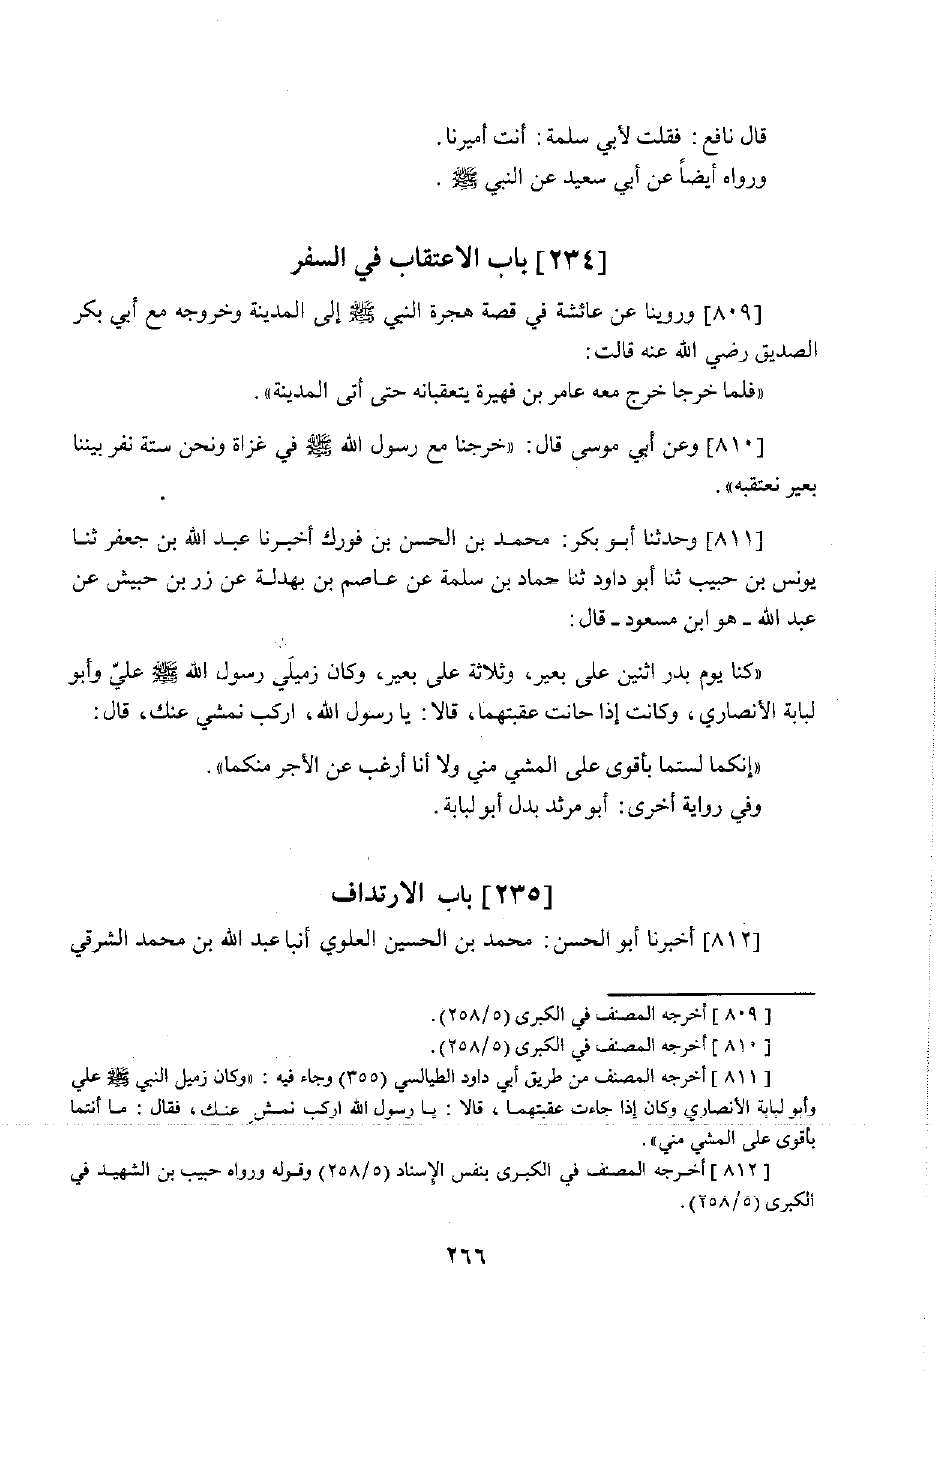 قال نافع : فقلت لأبي سلمة : أنت أميرنا .
ورواه أيضاً عن أبي سعيد عن النبي ﷺ .
[٢٣٤] باب الاعتقاب في السفر
[٨٠٩] وروينا عن عائشة في قصة هجرة النبي ﷺ إلى المدينة وخروجه مع أبي بكر
الصديق رضي الله عنه قالت :
«فلما خرجا خرج معه عامر بن فهيرة يتعقبانه حتى أتى المدينة» .
[٨١٠] وعن أبي موسى قال : «خرجنا مع رسول الله ﷺ في غزاة ونحن ستة نفر بيننا
بعير نعتقبه» .
[٨١١] وحدثنا أبو بكر : محمد بن الحسن بن فورك أخبرنا عبد الله بن جعفر ثنا
يونس بن حبيب ثنا أبو داود ثنا حماد بن سلمة عن عاصم بن بهدلة عن زر بن حبيش عن
عبد الله ـ هو ابن مسعود ـ قال :
«كنا يوم بدر اثنين على بعير، وثلاثة على بعير، وكان زميلَي رسول الله ﷺ عليّ وأبو
لبابة الأنصاري ، وكانت إذا حانت عقبتهما، قالا : يا رسول الله، اركب نمشي عنك، قال :
«إنكما لستما بأقوى على المشي مني ولا أنا أرغب عن الأجر منكما» .
وفي رواية أخرى : أبو مرثد بدل أبو لبابة .
[٢٣٥] باب الارتداف
[٨١٢] أخبرنا أبو الحسن : محمد بن الحسين العلوي أنبا عبد الله بن محمد الشرقي
[ ٨٠٩ ] أخرجه المصنف في الكبرى (٢٥٨/٥) .
[ ٨١٠ ] أخرجه المصنف في الكبرى (٢٥٨/٥) .
[ ٨١١ ] أخرجه المصنف من طريق أبي داود الطيالسي (٣٥٥) وجاء فيه : «وكان زميل النبي ﷺ علي
وأبو لبابة الأنصاري وكان إذا جاءت عقبتهما ، قالا : يا رسول الله اركب نمش عنك ، فقال : ما أنتما
بأقوى على المشي مني» .
[ ٨١٢ ] أخرجه المصنف في الكبرى بنفس الإسناد (٢٥٨/٥) وقوله ورواه حبيب بن الشهيد في
الكبرى (٢٥٨/٥) .
٢٦٦